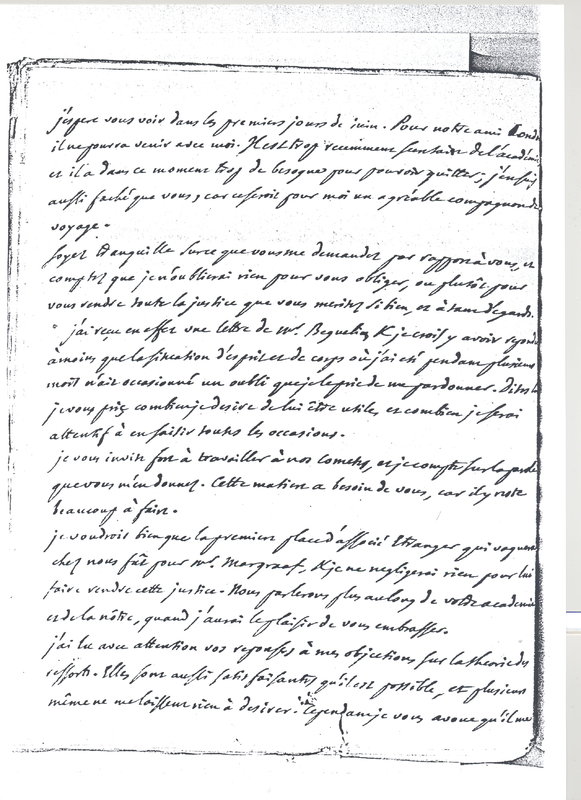 j'espere vous voir dans les premiers jours de juin. Pour notre ami
il ne pourra venir avec moi. Il est trop recemment secretaire de l'academie
et il a dans ce moment trop de besognes pour pouvoir quitter; j'en suis
aussi faché que vous, car ce seroit pour moi un agréable compagnon de
voyage.
soyez tranquille sur ce que vous me demandez par rapport à vous, et
comptez que je n'oublierai rien pour vous obliger, ou plutôt pour
vous rendre toute la justice que vous meritez si bien, et à tant d'egards.
j'ai reçu en effet une lettre de Mr. Beguelin, & je crois y avoir repondu
à moins que la situation d'esprit et de corps où j'ai eté pendant plusieurs
mois n'ait occasionné un oubli que je le prie de me pardonner. Dites lui
je vous prie combien je desire de lui être utile, et combien je serai
attentif à en saisir toutes les occasions.
je vous invite fort à travailler à nos cometes, et je compte sur la parole
que vous m'en donnez. Cette matiere a besoin de vous, car il y reste
beaucoup à faire.
je voudrois bien que la premiere place d'associé Etranger qui vaquera
chez nous fût pour Mr. Margraaf, & je ne negligerai rien pour lui
faire rendre cette justice. Nous parlerons plus au long de votre academie
et de la nôtre, quand j'aurai le plaisir de vous embrasser.
j'ai lu avec attention vos reponses à mes objections sur la theorie des
ressorts. Elles sont aussi satisfaisantes qu'il est possible, et plusieurs
même ne me laissent rien à desirer. Cependant je vous avoue qu'il me